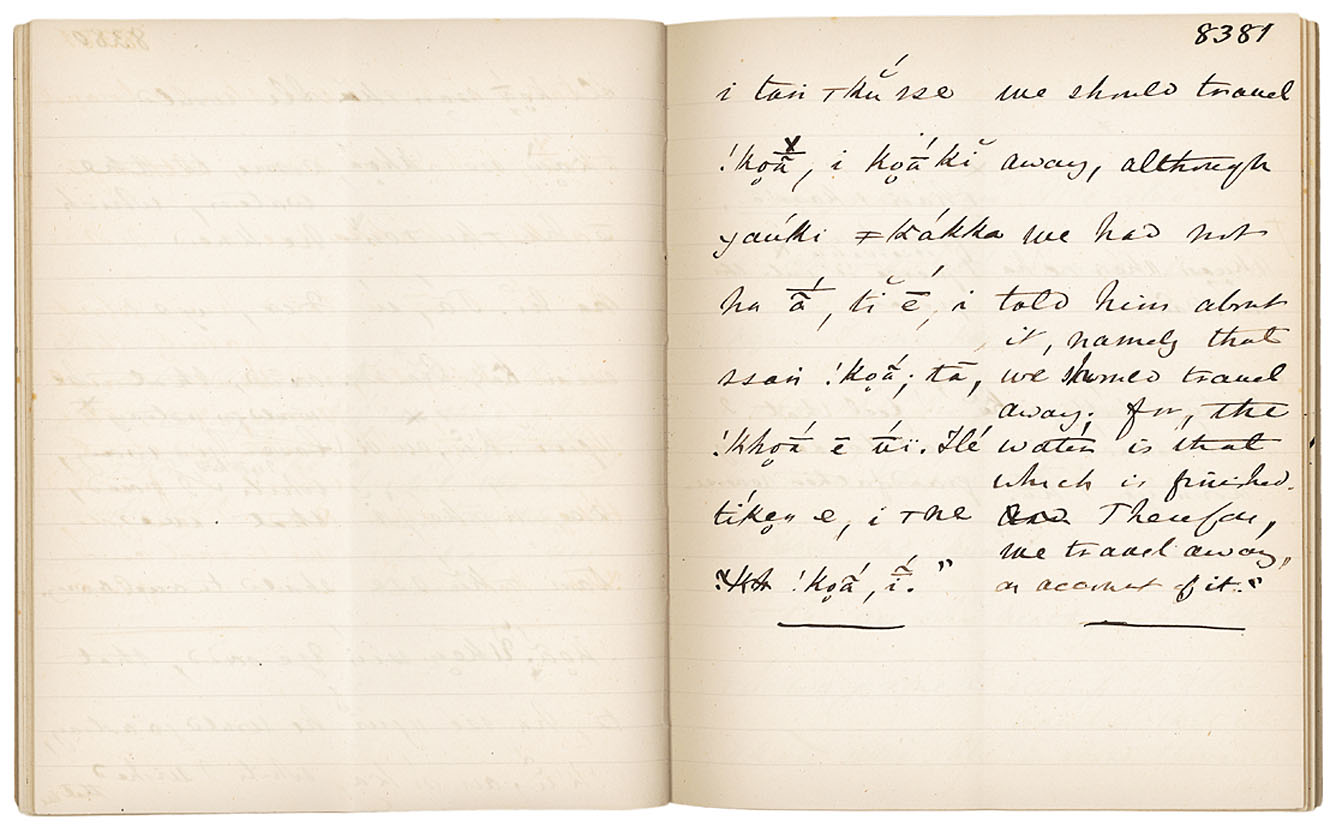 8381
i tan ┬kŭ́ sse we should travel
!ko̥ā̆, i ko̥ā́kĭ away, although
yaúki ≠kákka we had not
ha ā́, tĭ ḗ, i told him about
it, namely that
ssan !ko̥ā́; tā, we should travel
away; for, the
!kho̥ā́ ē ū́ï. Hé water is that
which is finished.
tíken̥ e, i ┬ne Therefore,
we travel away,
!ko̥ā́, ī́." on account of it."